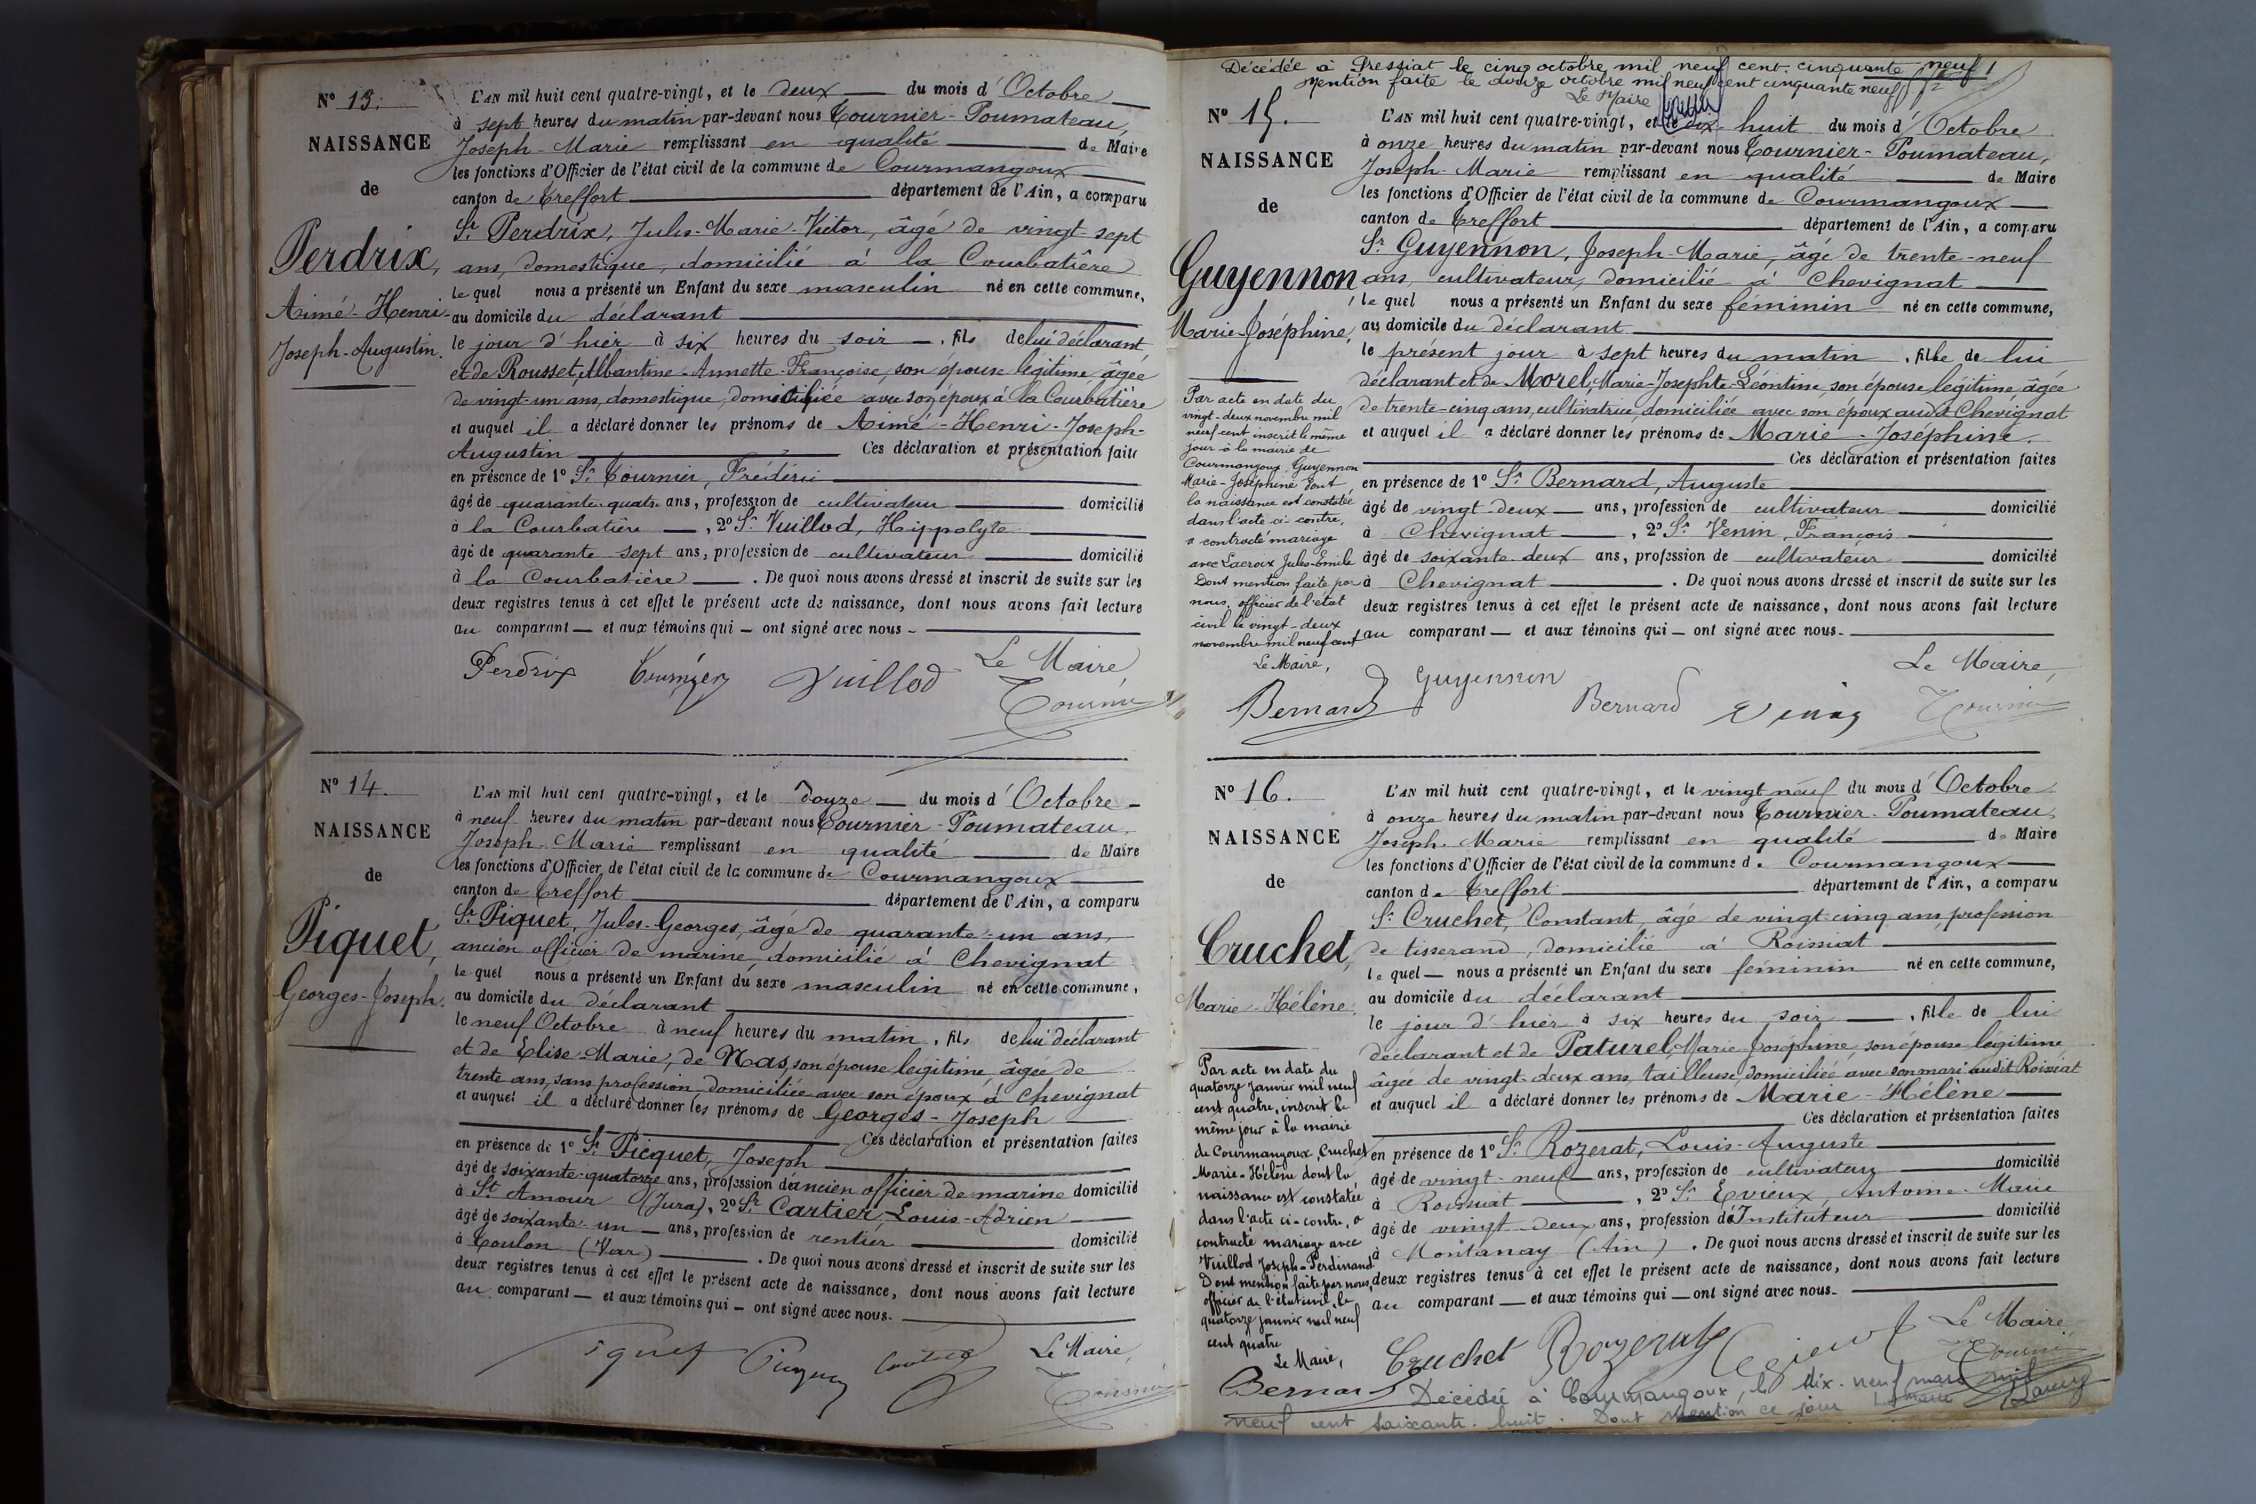 N° 13.
NAISSANCE
de
Perdrix,
Aimé-Henri-
Joseph-Augustin.
L'AN mil huit cent quatre-vingt, et le deux du mois d'Octobre
à sept heures du matin par-devant nous Tournier-Poumateau,
Joseph-Marie remplissant en qualité de Maire
les fonctions d'Officier de l'état civil de la commune de Courmangoux
canton de Treffort département de l'Ain, a comparu
Sr Perdrix, Jules-Marie-Victor, âgé de vingt-sept
ans, domestique, domicilié à la Courbatière
le quel nous a présenté un Enfant du sexe masculin né en cette commune,
au domicile du déclarant
le jour d'hier à six heures du soir, fils de lui déclarant
et de Rousset, Albantine-Annette-Françoise, son épouse légitime, âgée
de vingt-un ans, domestique, domiciliée avec son époux à la Courbatière
et auquel il a déclaré donner les prénoms de Aimé-Henri-Joseph-
Augustin Ces déclaration et présentation faites
en présence de 1° Sr Tournier, Frédéric
âgé de quarante-quatre ans, profession de cultivateur domicilié
à la Courbatière, 2° Sr Vuillod, Hippolyte
âgé de quarante sept ans, profession de cultivateur domicilié
à la Courbatière. De quoi nous avons dressé et inscrit de suite sur les
deux registres tenus à cet effet le présent acte de naissance, dont nous avons fait lecture
au comparant et aux témoins qui ont signé avec nous.
Le Maire,
Perdrix Tournier Vuillod Tournier
N° 14.
NAISSANCE
de
Piquet,
Georges-Joseph.
L'AN mil huit cent quatre-vingt, et le douze du mois d'Octobre
à neuf heures du matin par-devant nous Tournier-Poumateau,
Joseph-Marie remplissant en qualité de Maire
les fonctions d'Officier de l'état civil de la commune de Courmangoux
canton de Treffort département de l'Ain, a comparu
Sr Piquet, Jules-Georges, âgé de quarante-un ans,
ancien officier de marine, domicilié à Chevignat
le quel nous a présenté un Enfant du sexe masculin né en cette commune,
au domicile du déclarant
le neuf Octobre à neuf heures du matin, fils de lui déclarant
et de Elise-Marie, de Nas, son épouse légitime, âgée de
trente ans, sans profession, domiciliée avec son époux à Chevignat
et auquel il a déclaré donner les prénoms de Georges-Joseph
Ces déclaration et présentation faites
en présence de 1° Sr Picquet, Joseph
âgé de soixante-quatorze ans, profession d'ancien officier de marine domicilié
à St Amour (Jura), 2° Sr Cartier, Louis-Adrien
âgé de soixante-un ans, profession de rentier domicilié
à Toulon (Var). De quoi nous avons dressé et inscrit de suite sur les
deux registres tenus à cet effet le présent acte de naissance, dont nous avons fait lecture
au comparant et aux témoins qui ont signé avec nous.
Le Maire,
Piquet Picquet Cartier Tournier
Décédée à Pressiat le cinq octobre mil neuf cent cinquante neuf
Mention faite le douze octobre mil neuf cent cinquante neuf
Le Maire
N° 15.
NAISSANCE
de
Guyennon,
Marie-Joséphine,
Par acte en date du
vingt-deux novembre mil
neuf cent inscrit le même
jour à la mairie de
Courmangoux, Guyennon
Marie-Joséphine dont
la naissance est constatée
dans l'acte ci-contre,
a contracté mariage
avec Lacroix Jules-Emile
Dont mention faite par
nous, officier de l'état
civil le vingt-deux
novembre mil neuf cent
Le Maire,
Bernard
L'AN mil huit cent quatre-vingt, et le dix-huit du mois d'Octobre
à onze heures du matin par-devant nous Tournier-Poumateau,
Joseph-Marie remplissant en qualité de Maire
les fonctions d'Officier de l'état civil de la commune de Courmangoux
canton de Treffort département de l'Ain, a comparu
Sr Guyennon, Joseph-Marie, âgé de trente-neuf
ans, cultivateur, domicilié à Chevignat
le quel nous a présenté un Enfant du sexe féminin né en cette commune,
au domicile du déclarant
le présent jour à sept heures du matin, fille de lui
déclarant et de Morel, Marie-Josephte-Léontine, son épouse légitime, âgée
de trente-cinq ans, cultivatrice, domiciliée avec son époux audit Chevignat
et auquel il a déclaré donner les prénoms de Marie-Joséphine.
Ces déclaration et présentation faites
en présence de 1° Sr Bernard, Auguste
âgé de vingt-deux ans, profession de cultivateur domicilié
à Chevignat, 2° Sr Venin, François
âgé de soixante-deux ans, profession de cultivateur domicilié
à Chevignat. De quoi nous avons dressé et inscrit de suite sur les
deux registres tenus à cet effet le présent acte de naissance, dont nous avons fait lecture
au comparant et aux témoins qui ont signé avec nous.
Le Maire,
Guyennon Bernard Venin Tournier
N° 16.
NAISSANCE
de
Cruchet,
Marie-Hélène.
Par acte en date du
quatorze janvier mil neuf
cent quatre, inscrit le
même jour à la mairie
de Courmangoux, Cruchet
Marie-Hélène dont la
naissance est constatée
dans l'acte ci-contre, a
contracté mariage avec
Vuillod Joseph-Ferdinand
Dont mention faite par nous,
officier de l'état civil, le
quatorze janvier mil neuf
cent quatre
Le Maire,
Bernard
L'AN mil huit cent quatre-vingt, et le vingt neuf du mois d'Octobre
à onze heures du matin par-devant nous Tournier-Poumateau,
Joseph-Marie remplissant en qualité de Maire
les fonctions d'Officier de l'état civil de la commune de Courmangoux
canton de Treffort département de l'Ain, a comparu
Sr Cruchet, Constant, âgé de vingt-cinq ans, profession
de tisserand, domicilié à Roissiat
le quel nous a présenté un Enfant du sexe féminin né en cette commune,
au domicile du déclarant
le jour d'hier à six heures du soir, fille de lui
déclarant et de Paturel, Marie-Joséphine, son épouse légitime
âgée de vingt-deux ans, tailleuse, domiciliée avec son mari audit Roissiat
et auquel il a déclaré donner les prénoms de Marie-Hélène
Ces déclaration et présentation faites
en présence de 1° Sr Rozerat, Louis-Auguste
âgé de vingt-neuf ans, profession de cultivateur domicilié
à Roissiat, 2° Sr Evieux, Antoine-Marie
âgé de vingt-deux ans, profession d'Instituteur domicilié
à Montanay (Ain). De quoi nous avons dressé et inscrit de suite sur les
deux registres tenus à cet effet le présent acte de naissance, dont nous avons fait lecture
au comparant et aux témoins qui ont signé avec nous.
Le Maire,
Cruchet Rozerat Evieux Tournier
Décédée à Courmangoux, le dix-neuf mars mil
neuf cent soixante-huit. Dont mention ce jour Le maire